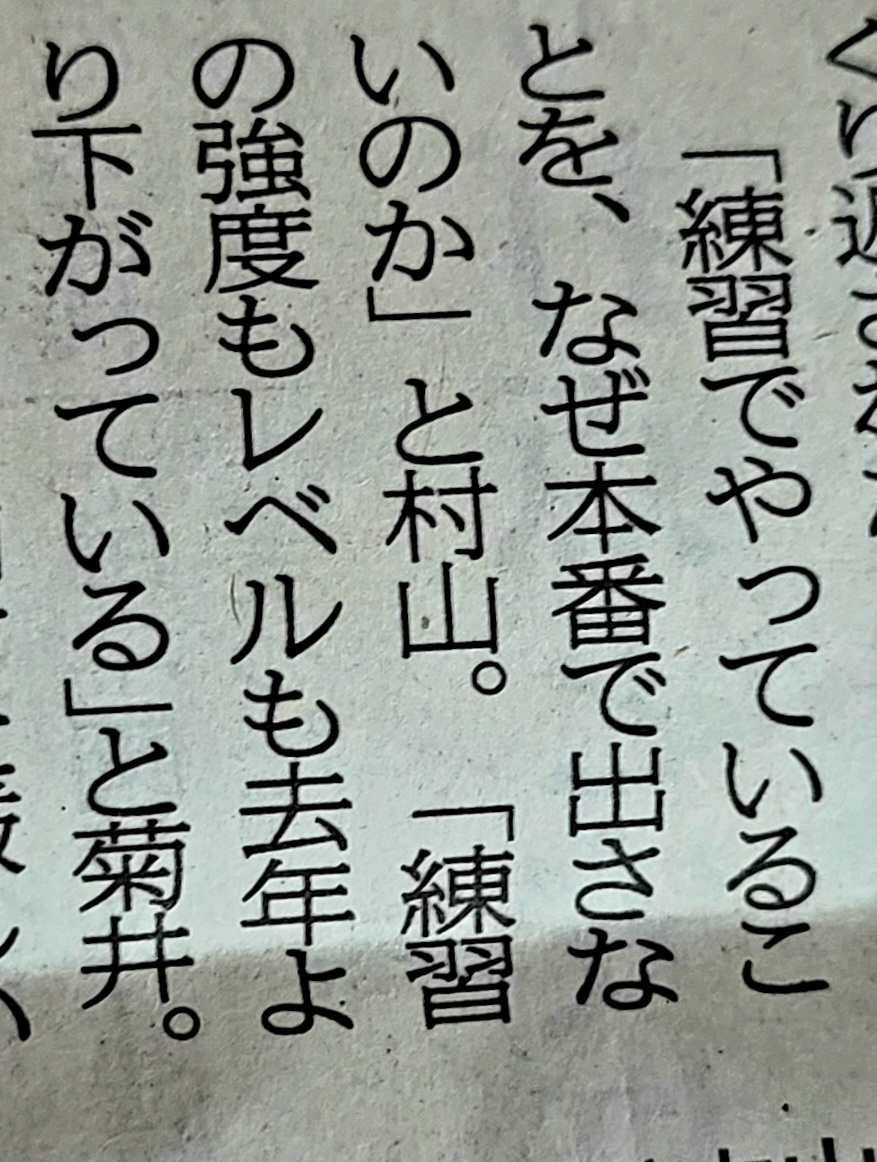 「練習でやっているこ
とを、なぜ本番で出さな
いのか」と村山。「練習
の強度もレベルも去年よ
り下がっている」と菊井。